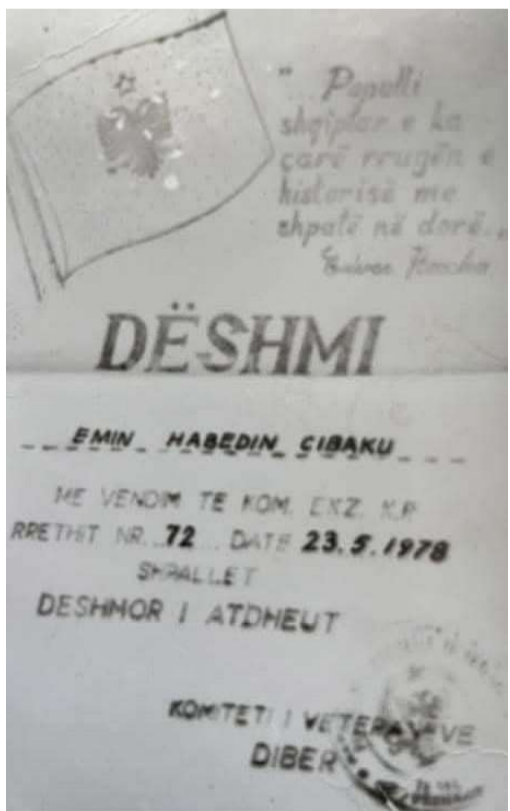 " Popull i
shqiptar e ka
çarë rrugën e
historisë me
shpatë në dorë..."
Enver Hoxha
DËSHMI
EMIN HABEDIN CIBAKU
ME VENDIM TE KOM. EKZ. K.P.
RRETHIT NR...72... DATË 23.5.1978
SHPALLET
DESHMOR I ATDHEUT
KOMITETI I VETERANEVE
DIBER